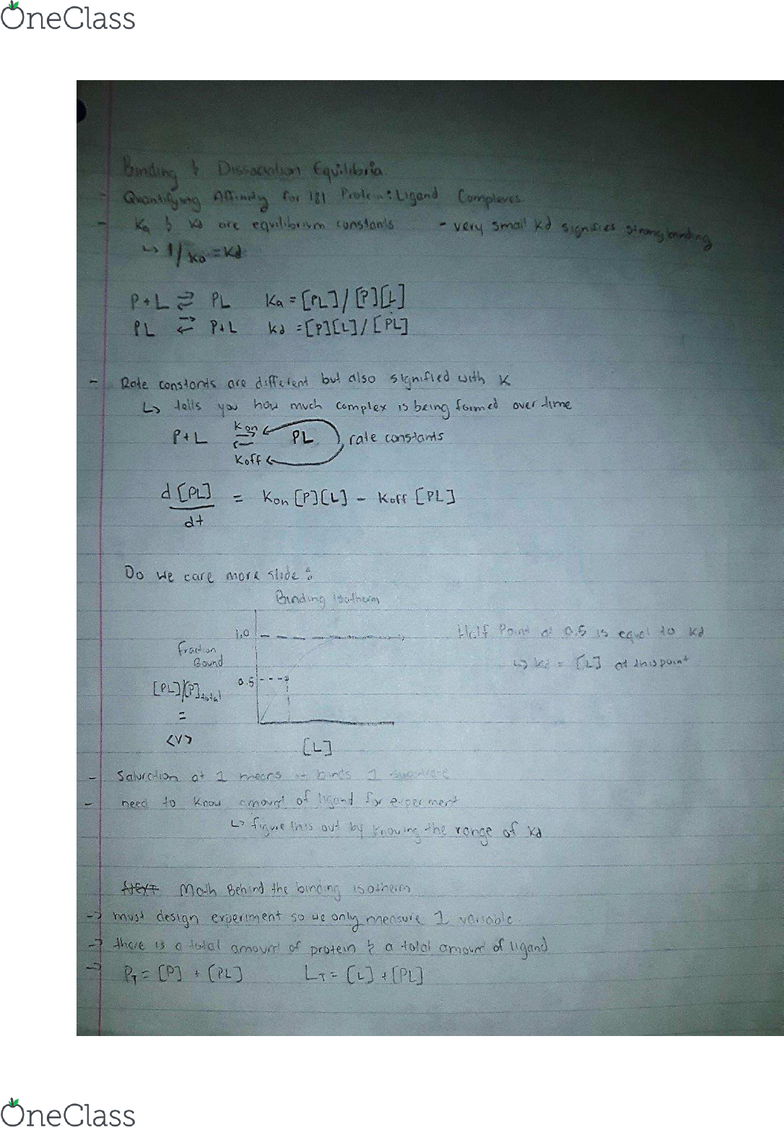 OneClass
Binding & Dissociation Equilibria
- Quantifying Affinity for 1:1 Protein:Ligand Complexes
- Ka & Kd are equilibrium constants - very small kd signifies strong binding
↳ 1/Ka = Kd
P+L ⇌ PL Ka = [PL]/[P][L]
PL ⇌ P+L kd = [P][L]/[PL]
- Rate constants are different but also signified with K
↳ tells you how much complex is being formed over time
P+L ⇌ PL rate constants
Kon
Koff
d[PL]/dt = Kon [P][L] - Koff [PL]
Do we care more slide:
Binding Isotherm
1.0
Fraction
Bound
0.5
[PL]/[P]total
=
<V>
[L]
Half Point at 0.5 is equal to kd
↳ kd = [L] at this point
- Saturation at 1 means it binds 1 substrate
- need to know amount of ligand for experiment
↳ figure this out by knowing the range of kd
NEXT Math Behind the binding isotherm
-> must design experiment so we only measure 1 variable
-> there is a total amount of protein & a total amount of ligand
-> PT = [P] + [PL] LT = [L] + [PL]
OneClass